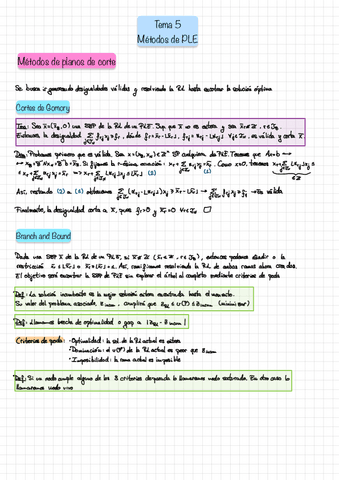 Tema 5
Métodos de PLE
Métodos de planos de corte
Se busca ir generando desigualdades válidas y resolviendo la RL hasta encontrar la solución óptima
Cortes de Gomory
Teo: Sea x̄ = (x̄_B, 0) una SBF de la RL de un PLE. Sup que x̄ no es entera y sea x̄_r ∉ ℤ, r ∈ J_B.
Entonces la desigualdad ∑ f_rj x_j ≥ f_r, dónde f_r = x̄_r - ⌊x̄_r⌋, f_rj = α_rj - ⌊α_rj⌋ ∀j ∈ J_N, es válida y corta x̄
Dem: Probamos primero que es válida. Sea x = (x_B, x_N) ∈ ℤⁿ SF cualquiera de PLE. Tenemos que Ax = b
Así, restando (2) a (1) obtenemos
es válida
Finalmente, la desigualdad corta a x̄, pues f_r > 0 y x̄_j = 0 ∀j ∈ J_N □
Branch and Bound
Dada una SBF x̄ de la RL de un PLE, si x̄_r ∉ ℤ, r ∈ J_B, entonces podemos añadir o la
restricción x_r ≤ ⌊x̄_r⌋ o x_r ≥ ⌊x̄_r⌋ + 1. Así, continuamos resolviendo la RL de ambas ramas creadas.
El objetivo será encontrar la SBF de PLE sin explorar el árbol al completo mediante criterios de poda
Def: La solución incumbente es la mejor solución entera encontrada hasta el momento.
Su valor del problema asociado, z_incum, cumplirá que
Def: Llamamos brecha de optimalidad o gap a
Criterios de poda: · Optimalidad: la sol. de la RL actual es entera
· Dominación: el v(P) de la RL actual es peor que z_incum
· Imposibilidad: la RL actual es imposible
Def: Si un nodo cumple alguno de los 3 criterios de poda lo llamaremos nodo sondeado. En otro caso lo
llamaremos nodo vivo